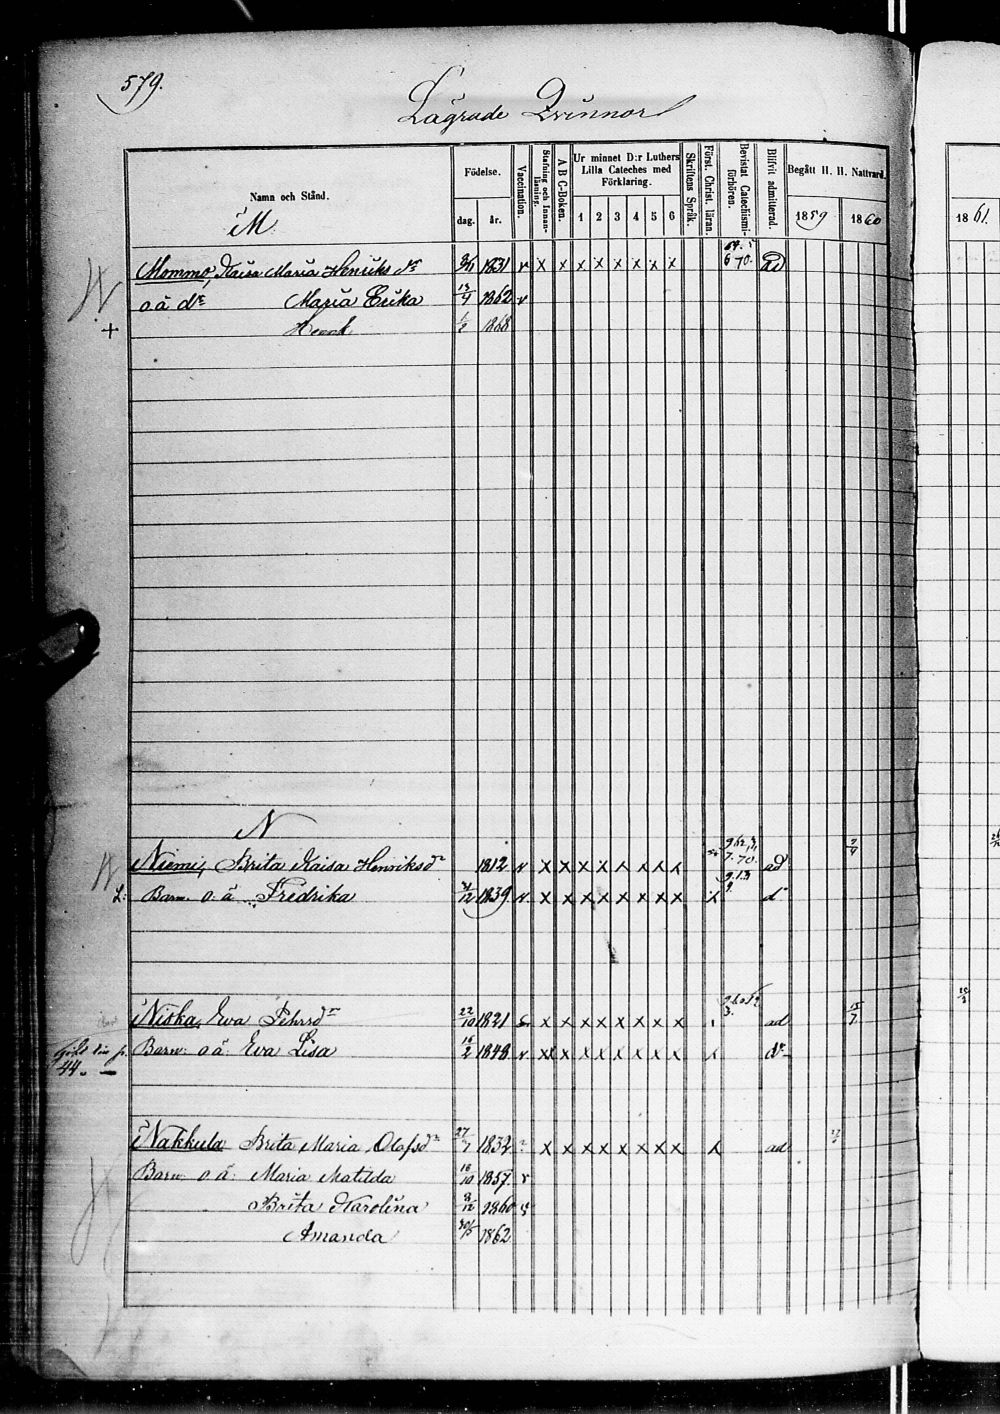 579.
Lägrade Qvinnor
Namn och Stånd.
Födelse.
dag. år.
Vaccination.
Stafning och Innanläsning.
A B C-Boken.
Ur minnet D:r Luthers Lilla Cateches med Förklaring.
1 2 3 4 5 6
Skriftens Språk.
Först. Christ. läran.
Bevistat Catechismiförhören.
Blifvit admitterad.
Begått H. H. Nattvard.
1859 1860
1861.
M
Mommo, Kaisa Maria Henriksdr 1831 v x x x x x x x x 6 70. ad
o ä dr Maria Erika 13/4 1862 v
+ Henrik 1868
N
Niemi, Brita Kaisa Henriksdr 1812 v x x x x x x x x 7. 70. ad
L. Barn o ä Fredrika 21/12 1839 v x x x x x x x x x d
Niska, Eva Pehrsdr 22/10 1821 x x x x x x x x 3. ad 15/7
Barn o ä Eva Lisa 15/2 1848 v x x x x x x x x x dr
44.
Nakkula Brita Maria Olofsdr 27/7 1832 x x x x x x x x x ad
Barn o ä Maria Matilda 18/10 1857 v
Brita Karolina 1860 v
Amanda 1862